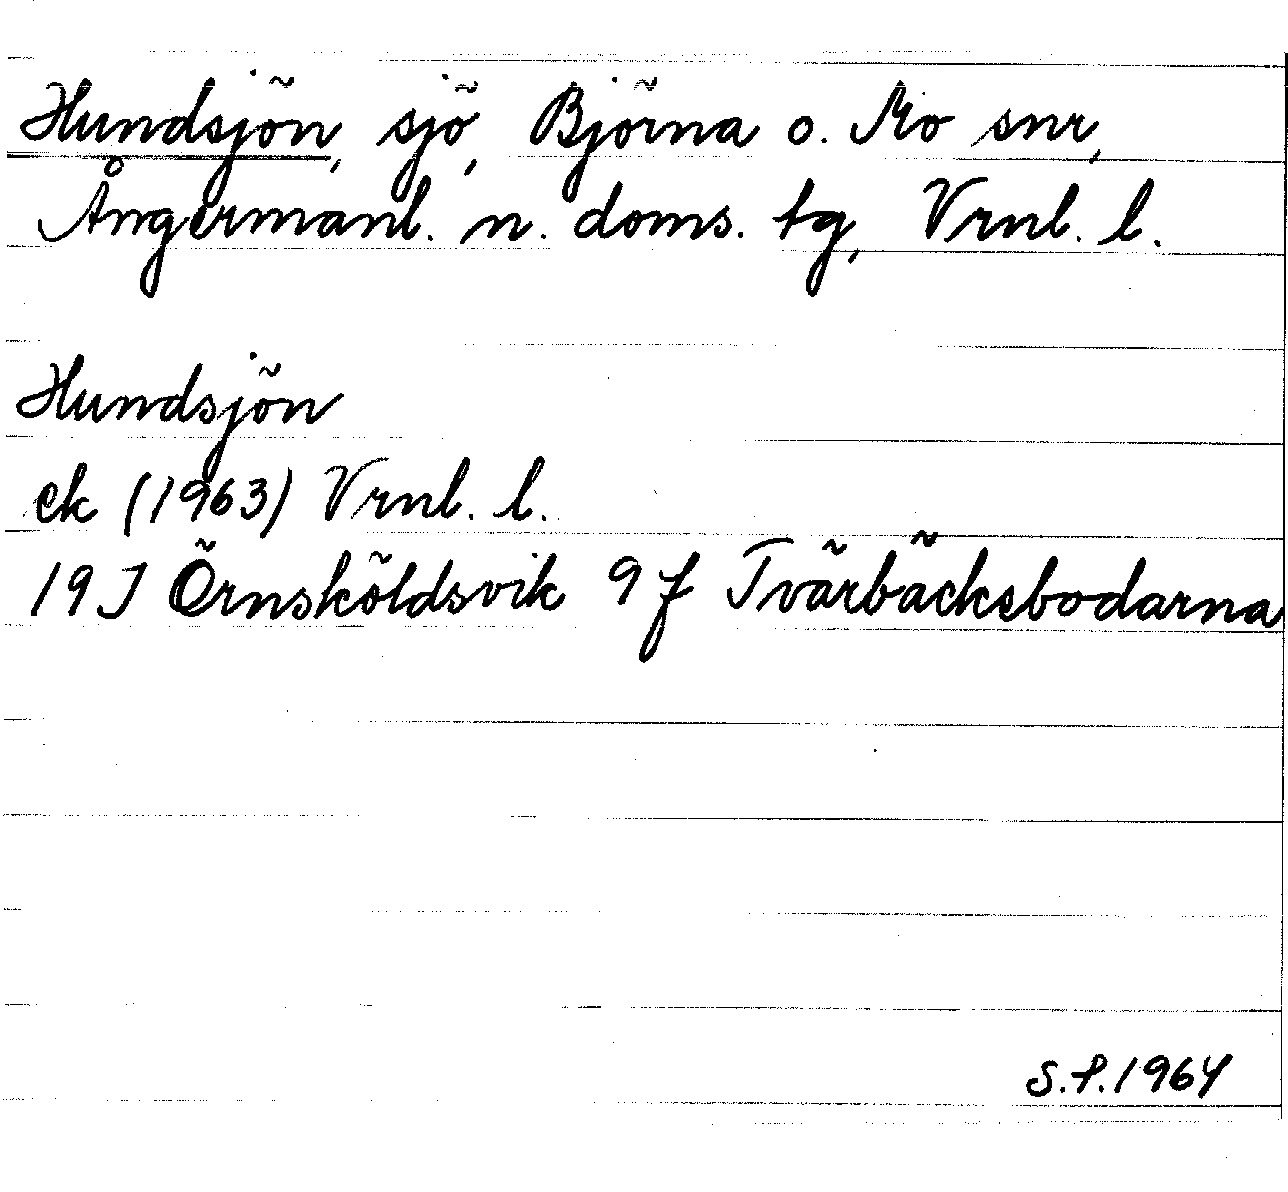 Hundsjön, sjö, Björna o. Mo snr,
Ångermanl. n. doms. tg, Vrnl. l.
Hundsjön
ek (1963) Vrnl. l.
19 J Örnsköldsvik 9 f Tvärbäcksbodarna
S.P. 1964